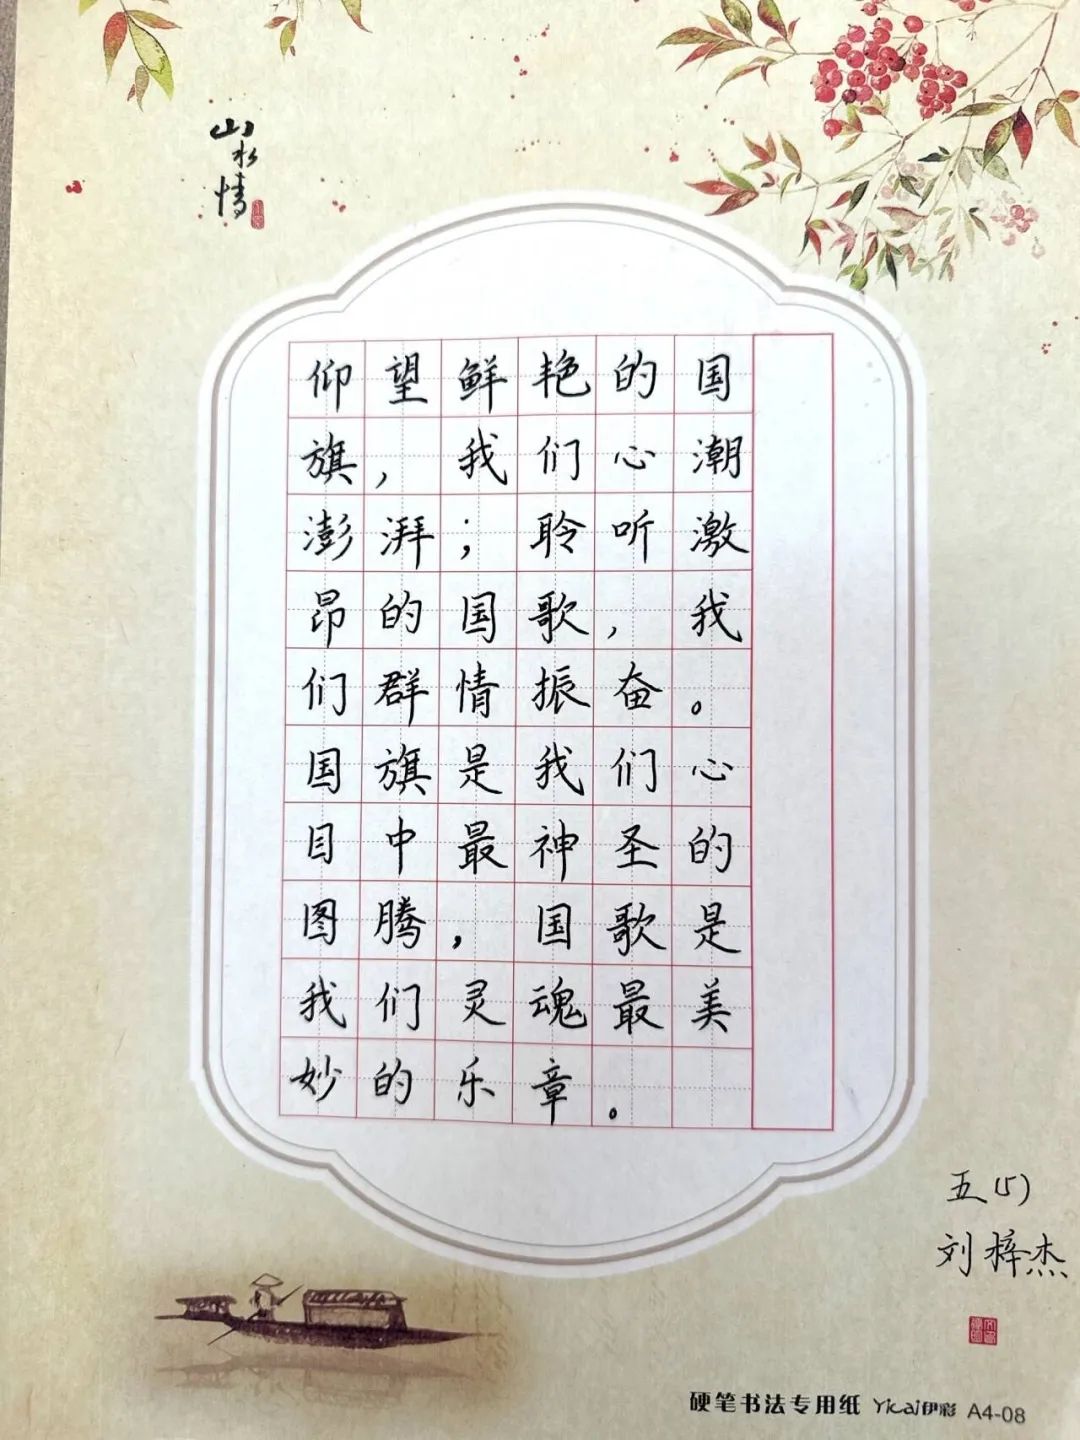 山水情
仰望鲜艳的国
旗，我们心潮
澎湃；聆听激
昂的国歌，我
们群情振奋。
国旗是我们心
目中最神圣的
图腾，国歌是
我们灵魂最美
妙的乐章。
五(5)
刘梓杰
硬笔书法专用纸 Yicai伊彩 A4-08